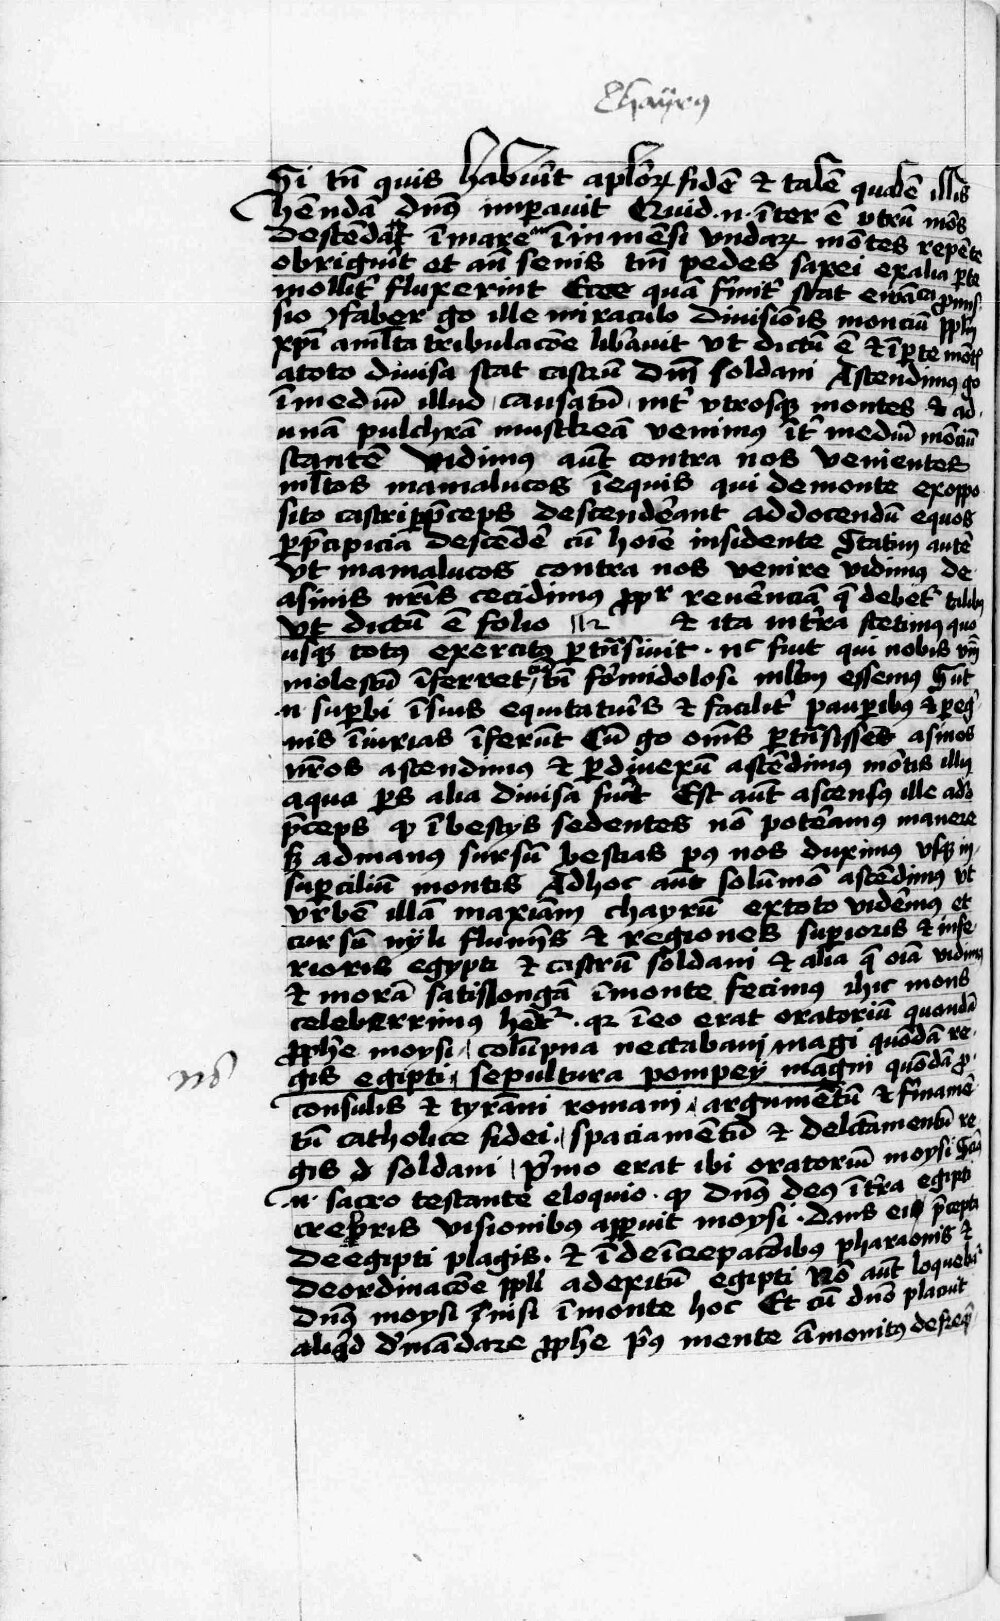 Chayrus
Si tn̄ quis habuīt aplōꝝ fidē & talē qualē illis
hēndā dn̄s imꝑavit Quid .n. īter ē vtrū mōs
descēdat ī mare an̄ ī inmēsi vndaꝝ mōtes repēte
obriguīt et an̄ senis tm̄ pedes saxei ex alia ꝑte
mollit᷑ fluxerint Ecce quā firmit᷑ stat ewāᵗᵃ ꝓmis
sio ꝯfaber go ille miraculo divisiōis monciū pplm̄
xp̄i a mlta tribulacōe lib̄avit vt dictū ē & ī ꝑte mōt᷑
a toto divisa stat castrū Dn̄i soldani Ascendimꝰ go
ī mediū illud causatū int᷑ vtrosqꝫ montes & ad
unā pulchrā muscheā venimꝰ īt᷑ mediū mōciū
stantē vidimꝰ aūt contra nos venientes
mltos mamalucos ī equis qui de monte ex oppo
sito castri p̄ceps descendērant ad docendū equos
ꝑ p̄cipicia descēdē cū hoīe insidente Statim autē
vt mamalucos contra nos venire vidimꝰ de
asinis nrīs cecidimꝰ ꝓpt᷑ revēnciā q̄ debet᷑ talibꝰ
vt dictū ē folio & ita int̄ra stetimꝰ quo
usqꝫ totꝰ exercitꝰ ꝑtn̄sivit . nᶜ fuit qui nobis vm̄
molestū īferret tn̄ formidolosi mltm̄ essemꝰ Sūt
.n. suꝑbi ī suis equitaturīs & facilit᷑ pauꝑibꝰ & ꝑeg᷑
nis īiurias īferūt Cū go om̄s ꝑtn̄sissēt asinos
nr̄os ascendimꝰ & ꝑ divexū ascēdimꝰ mōtis illiꝰ
a qua ꝑs alia divisa fuīt Est aūt ascensꝰ ille adō
p̄ceps ꝙ ī bestys sedentes nō potērāmꝰ manere
sꝫ ad manꝰ sursū bestias pꝰ nos duximꝰ vsqꝫ in
suꝑciliū montis Ad hoc aūt solūmō ascēdimꝰ vt
vrbē illā maxīam chayrū ex toto vidēmꝰ et
cursū nyli flumīs & regiones suꝑioris & infe
rioris egypti & castrū soldani & alia q̄ oīa vidimꝰ
& morā satis longā ī monte fecimꝰ hic mons
celeberrimus hēt᷑ . qꝛ ī eo erat oratoriū quondā
ꝓphē moysi colūpna nectabani magi quōdā re
gis egipti sepultura pompey magni quōdā ꝓ
consulis & tyrāni romani argumētū & firmamē
tū catholice fidei spaciamētū & delctāmentū re
gis d soldani pīmo erat ibi oratoriū moysi
.n. sacro testante eloquio . ꝙ dn̄s deꝰ īt᷑ra egipti
crebris visionibus apꝑuit moysi . dans ei p̄cepta
de egipti plagis . & ī deīcepacōibꝰ pharaonis &
de ordinacōe ppli ad exitū egipti Nō aūt loquebat᷑
dn̄s moysi nisi ī monte hoc Et cū dn̄o placuit
aliqd dēmādare ꝓphē pꝰ mente āmonitꝰ
nō